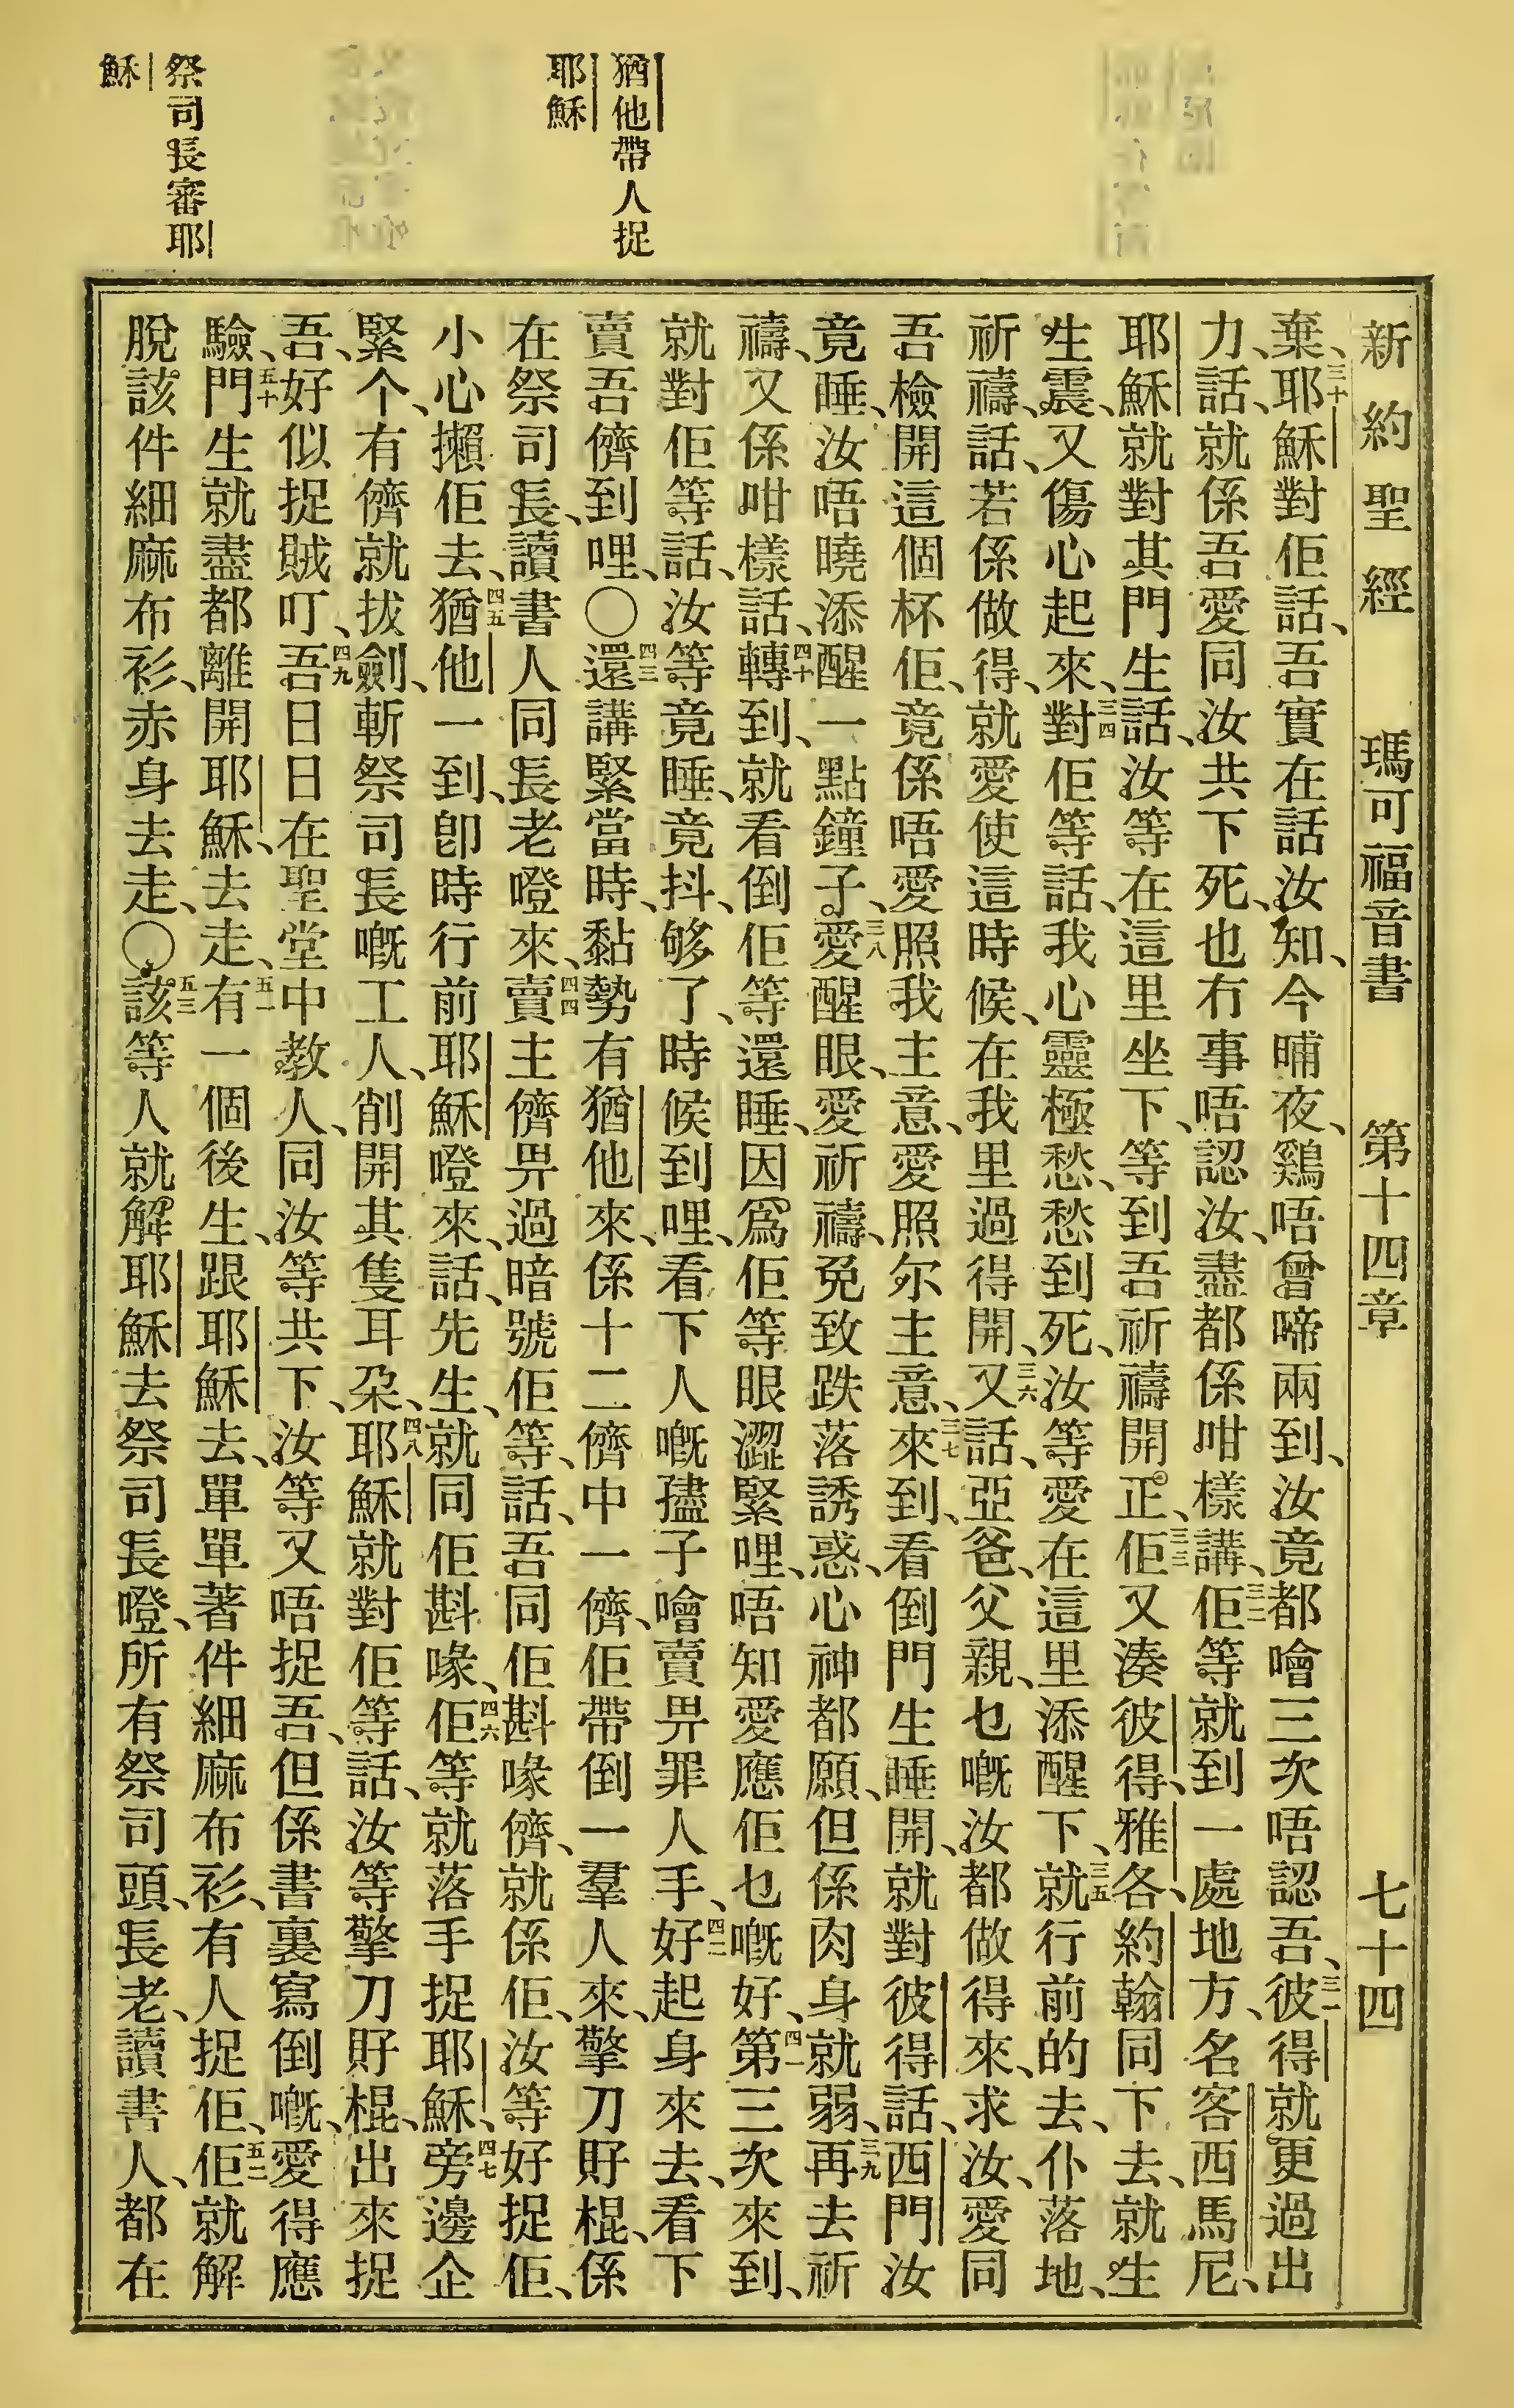 新約聖經　瑪可福音書　第十四章　七十四
棄、三十耶穌對佢話、吾實在話汝知、今晡夜、鷄唔曾啼兩到、汝竟都噲三次唔認吾、三一彼得就更過出
力、話、就係吾愛同汝共下死、也冇事唔認汝、盡都係咁樣講、三二佢等就到一處地方、名客西馬尼、
耶穌就對其門生話、汝等在這里坐下、等到吾祈禱開正、三三佢又湊彼得、雅各、約翰同下去、就生
生震、又傷心起來、三四對佢等話、我心靈極愁、愁到死、汝等愛在這里添醒下、三五就行前的去、仆落地、
祈禱、話、若係做得、就愛使這時候、在我里過得開、三六又話、亞爸、父親、乜嘅汝都做得來、求汝、愛同
吾檢開這個杯佢、竟係唔愛照我主意、愛照尔主意、三七來到、看倒門生睡開、就對彼得話、西門汝
竟睡、汝唔曉添醒一點鐘子、三八愛醒眼、愛祈禱、免致跌落誘惑、心神都願、但係肉身就弱、三九再去祈
禱、又係咁樣話、四十轉到、就看倒佢等還睡、因爲佢等眼澀緊哩、唔知愛應佢乜嘅好、四一第三次來到、
就對佢等話、汝等竟睡、竟抖、够了、時候到哩、看下人嘅孻子噲賣畀罪人手、四二好起身來去、看下
賣吾儕到哩、〇四三還講緊當時、黏勢有猶他來、係十二儕中一儕、佢帶倒一羣人來、擎刀䝼棍、係
在祭司長、讀書人同長老嶝來、四四賣主儕畀過暗號佢等、話、吾同佢斟喙儕、就係佢、汝等好捉佢、
小心攋佢去、四五猶他一到、卽時行前耶穌嶝來、話、先生、就同佢斟喙、四六佢等就落手捉耶穌、四七旁邊企
緊个、有儕就拔劍、斬祭司長嘅工人、削開其隻耳朶、四八耶穌就對佢等話、汝等擎刀䝼棍、出來捉
吾、好似捉賊叮、四九吾日日在聖堂中教人、同汝等共下、汝等又唔捉吾、但係書裏寫倒嘅、愛得應
驗、五十門生就盡都離開耶穌、去走、五一有一個後生、跟耶穌去、單單著件細麻布衫、有人捉佢、五二佢就解
脫該件細麻布衫、赤身去走、〇五三該等人就解耶穌去祭司長嶝、所有祭司頭、長老、讀書人、都在
猶他帶人捉
耶穌
祭司長審耶
穌